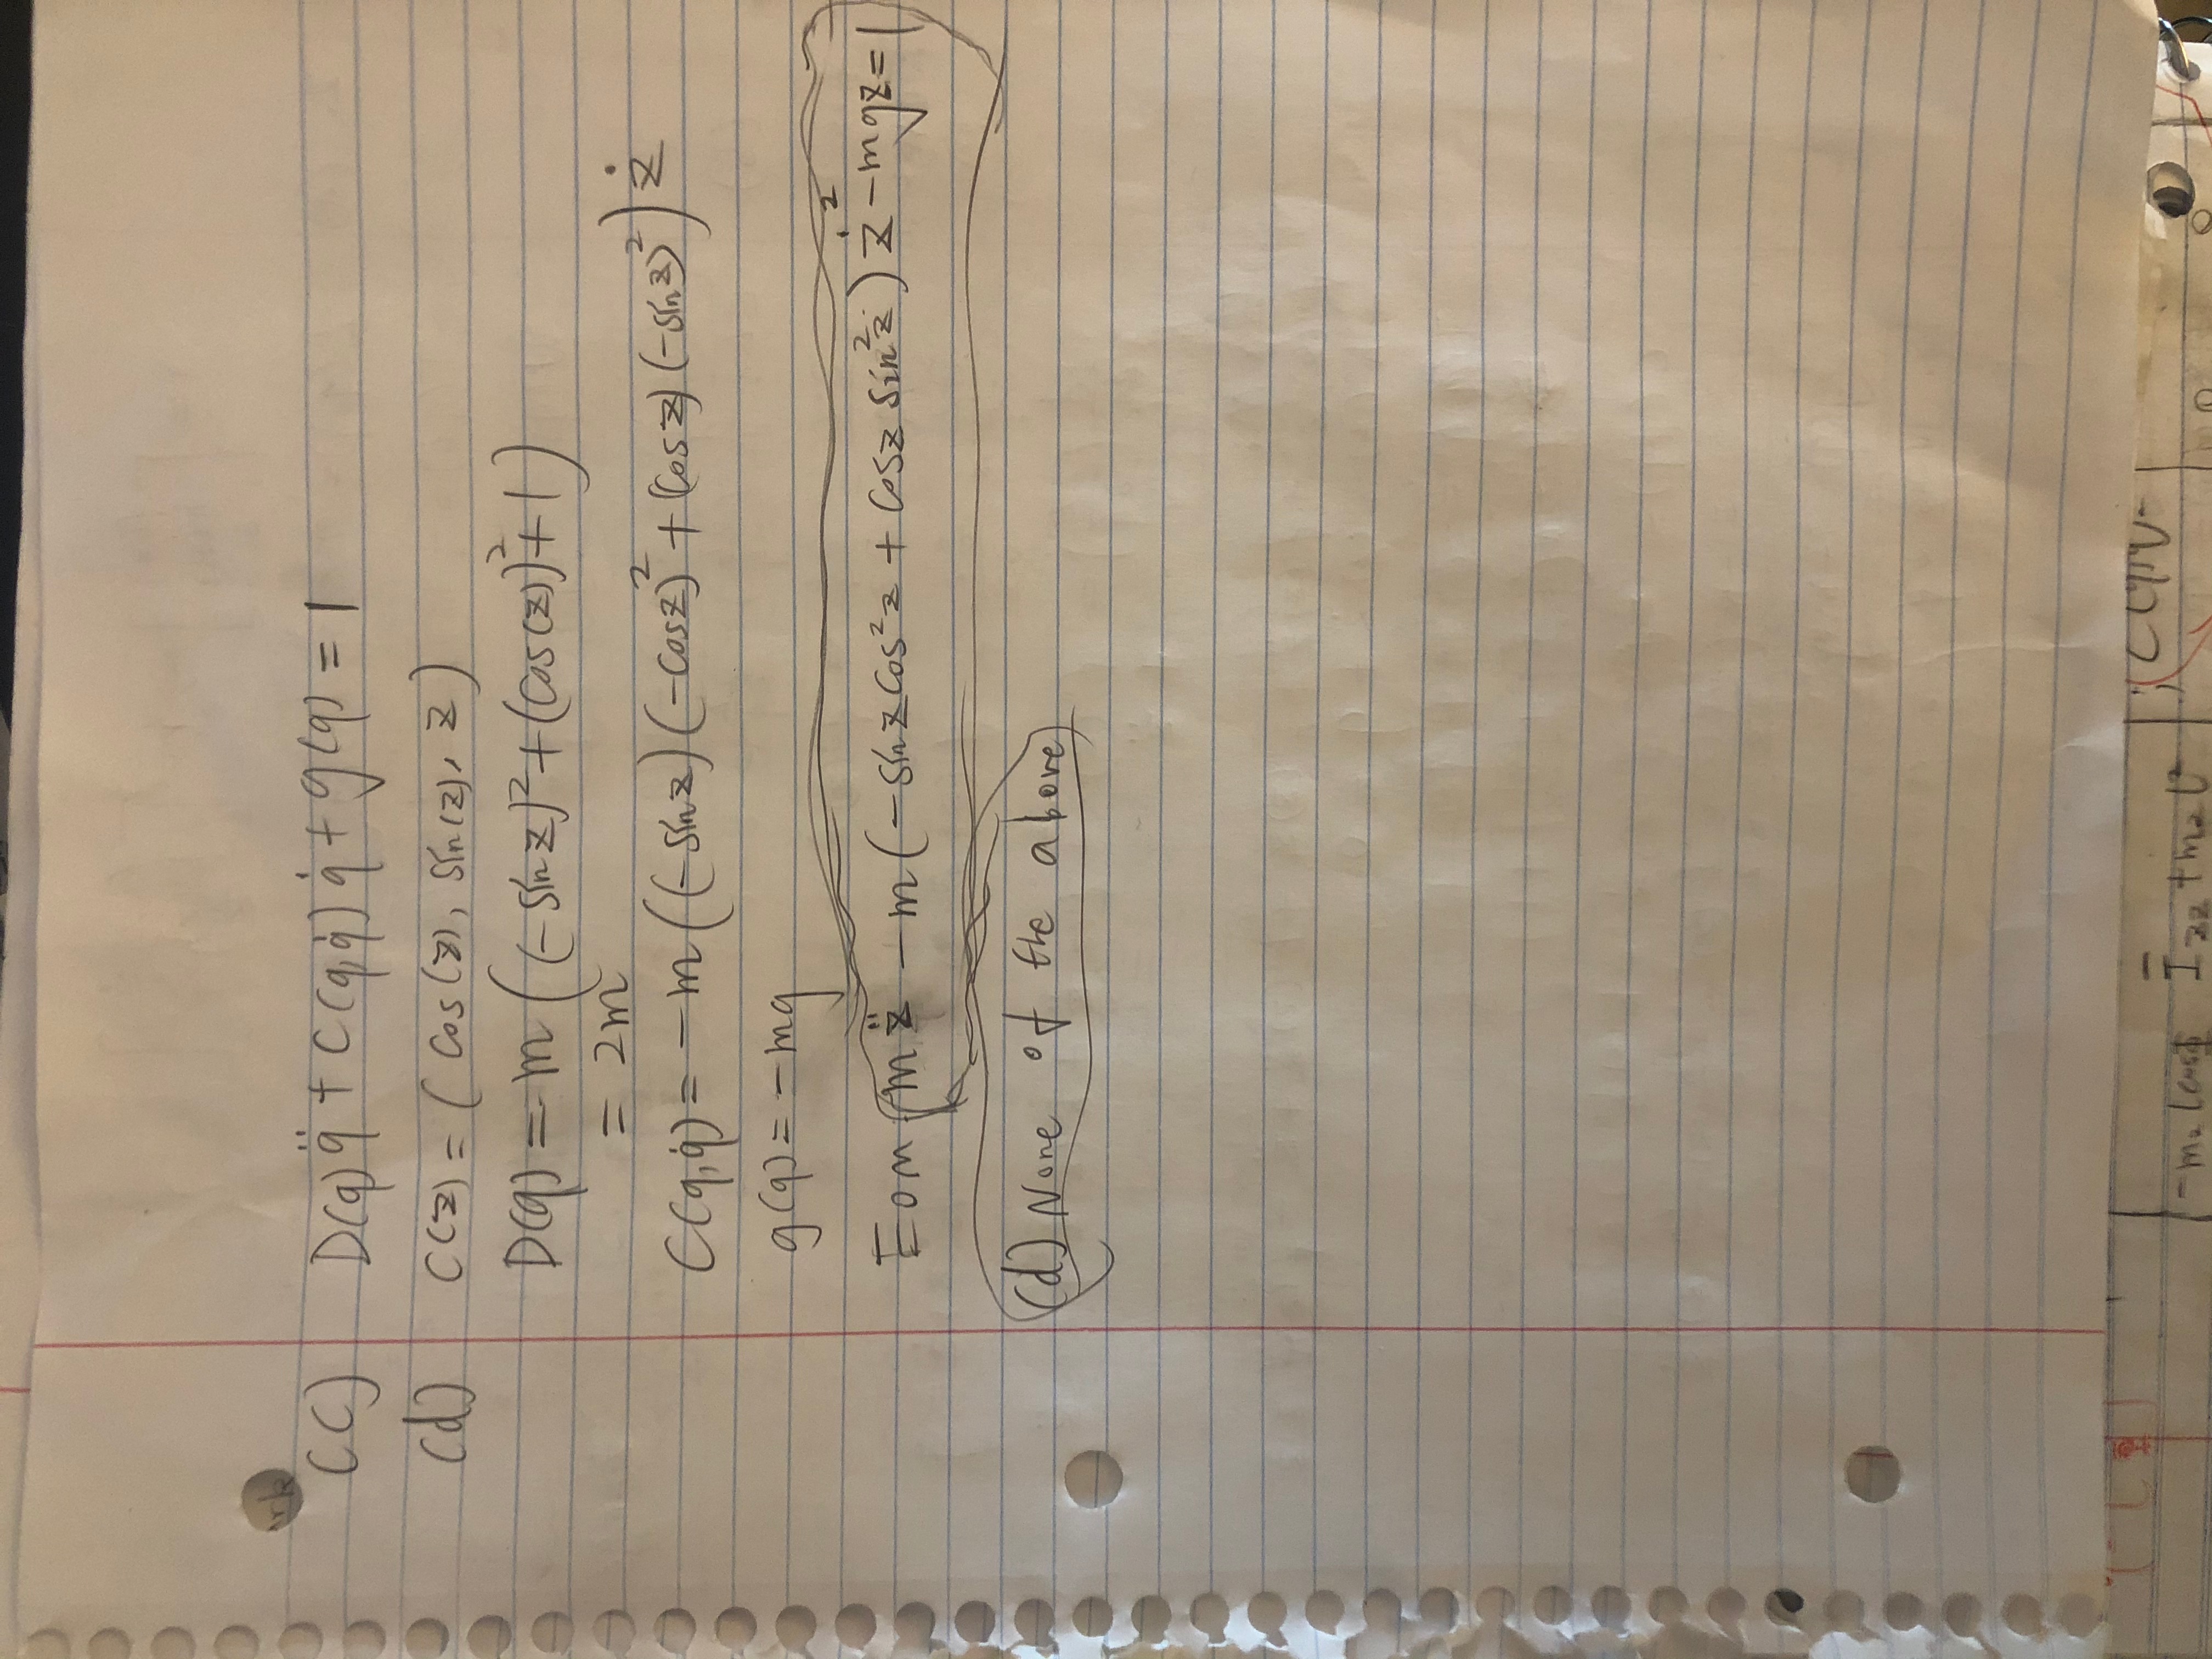 rk
(c) D(q)q̈ + C(q,q̇)q̇ + g(q) = 1
(d) C(z) = ( Cos(z), Sin(z), z )
D(q) = m ( (-Sin z)² + (Cos(z))² + 1 )
= 2m
C(q,q̇) = -m ( (-Sin z) (-Cos z)² + (Cos z) (-Sin z)² ) ż
g(q) = -mg
EOM m z̈ - m ( -Sin z Cos² z + Cos z Sin² z ) ż² - mgz = 1
(d) None of the above
-m₂ l cosφ Ī₂₂ + m₂ l² ;